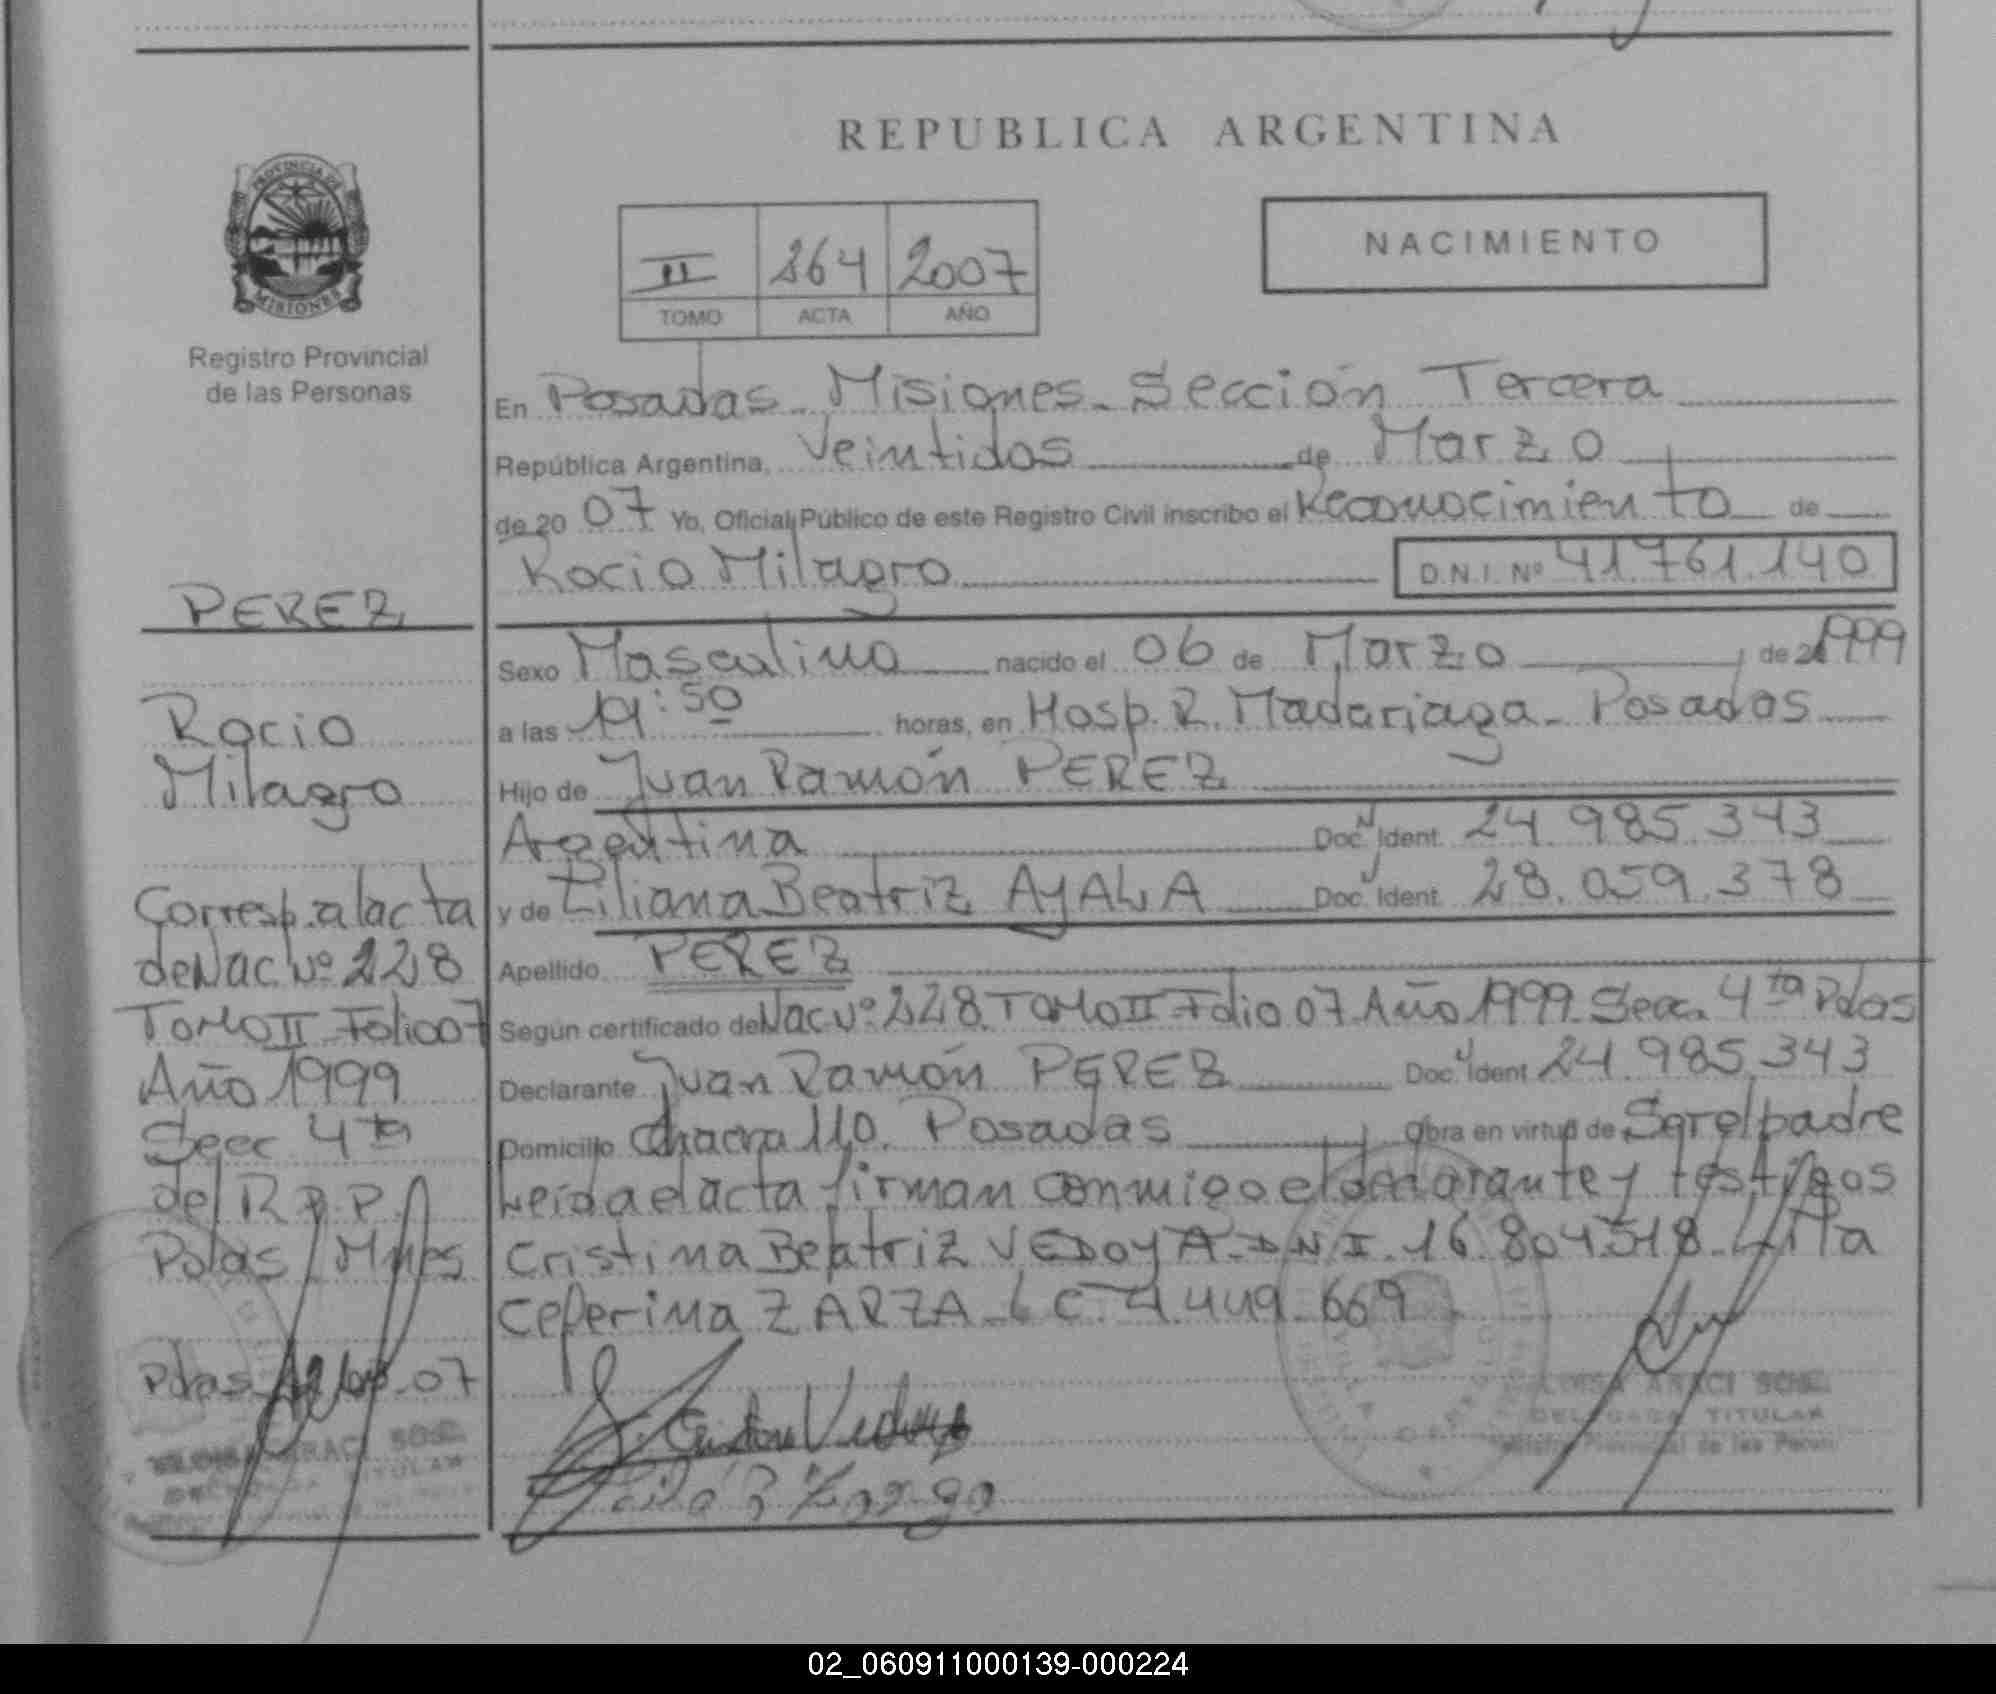 REPUBLICA ARGENTINA
PROVINCIA DE
MISIONES
Registro Provincial
de las Personas
II 264 2007
TOMO ACTA AÑO
NACIMIENTO
En Posadas - Misiones - Sección Tercera
República Argentina, Veintidos de Marzo
de 2007 Yo, Oficial Público de este Registro Civil inscribo el Reconocimiento de
Rocio Milagro D.N.I. Nº 41.761.140
Sexo Masculino nacido el 06 de Marzo de 1999
a las 19:50 horas, en Hosp. R. Madariaga - Posadas
Hijo de Juan Ramón PEREZ
Argentina Doc. Ident. 24.985.343
y de Liliana Beatriz AyALA Doc. Ident. 28.059.378
Apellido PEREZ
Según certificado de Nac Nº 228 TOMO II Folio 07 Año 1999 Secc. 4ta Pdas
Declarante Juan Ramón PEREZ Doc. Ident 24.985.343
Domicilio Chacra 110. Posadas Obra en virtud de Ser el padre
Leida el acta firman conmigo el declarante y testigos
Cristina Beatriz VEDOyA - D.N.I. 16.804518
Ceferina ZARZA L C 4.449.669
PEREZ
Rocio
Milagro
Corresp. al acta
de Nac Nº 228
TOMO II Folio 07
Año 1999
Secc 4ta
del R.P.P.
Pdas Mnes
Pdas 07
ARACI
TITULAR
ARACI
DELEGADA TITULAR
02_060911000139-000224